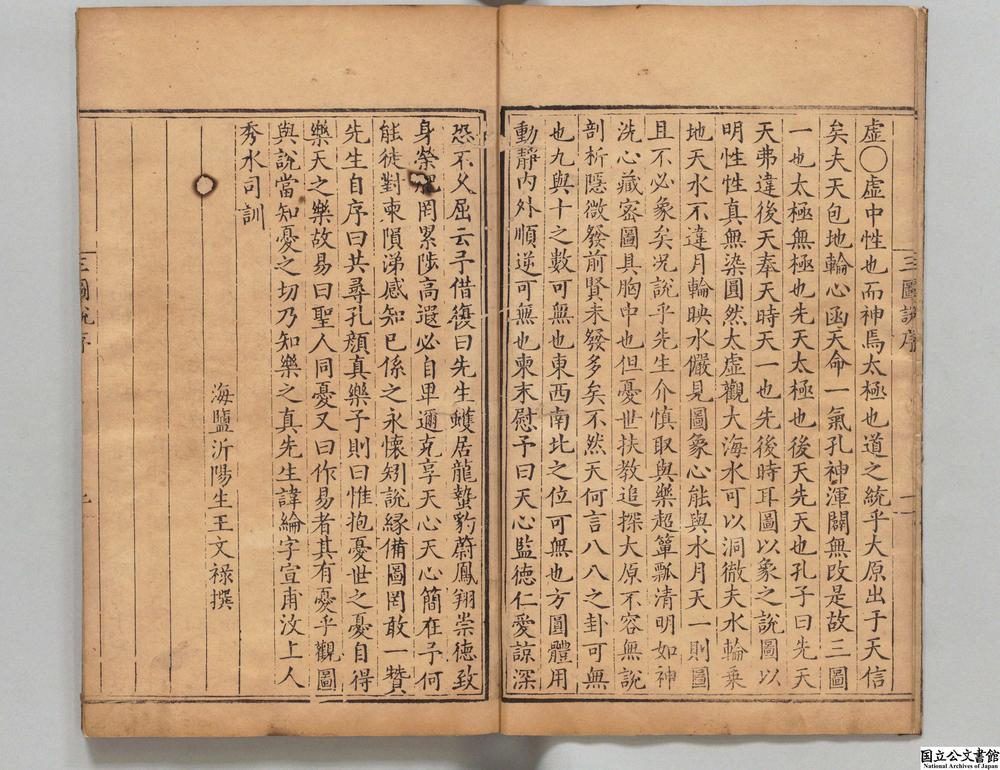 虛〇虛中性也而神焉太極也道之統乎大原出于天信
矣夫天包地輪心函天命一氣孔神渾闢無改是故三圖
一也太極無極也先天太極也後天先天也孔子曰先天
天弗違後天奉天時天一也先後時耳圖以象之說圖以
明性性真無染圓然太虛觀大海水可以洞徹夫水輪乗
地天水不違月輪映水儼見圖象心能與水月天一則圖
且不必象矣况說乎先生介慎取與樂超簞瓢清明如神
洗心藏密圖具胸中也但憂世扶教追探大原不容無說
剖析隱微發前賢未發多矣不然天何言八八之卦可無
也九與十之數可無也東西南北之位可無也方圓體用
動靜内外順逆可無也柬末慰予曰天心監德仁愛諒深
恐不乆屈云予借復曰先生蠖居龍蟄豹蔚鳳翔崇德致
身榮罔累陟高遐必自卑邇克享天心天心簡在予何
能徒對柬隕涕感知已係之永懷矧說縁備圖罔敢一贊
先生自序曰共尋孔顔真樂予則曰惟抱憂世之憂自得
樂天之樂故易曰聖人同憂又曰作易者其有憂乎觀圖
與說當知憂之切乃知樂之真先生諱綸字宣甫汶上人
秀水司訓
海鹽沂陽生王文祿撰
三圖說序
二
三圖說序
國立公文書館
National Archives of Japan